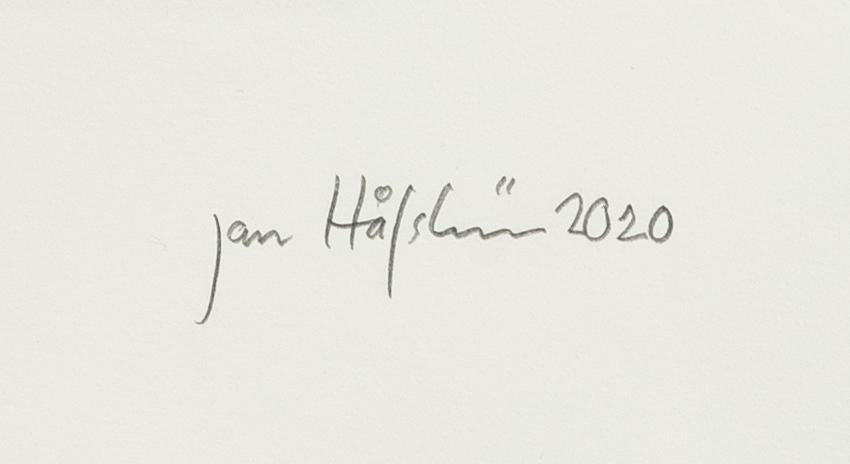 Jan Håfström 2020